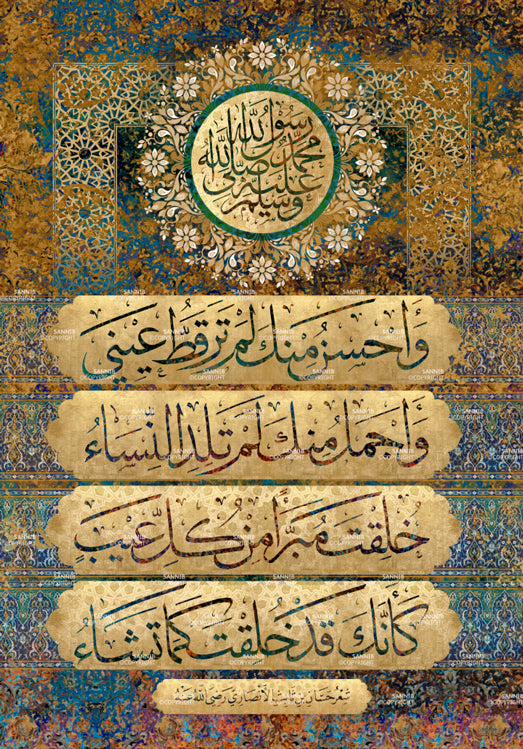 محمد رسول الله صلى الله عليه وسلم
وَأَحسَنُ مِنكَ لَم تَرَ قَطُّ عَيْنِي
وَأَجمَلُ مِنكَ لَم تَلِدِ النِّسَاءُ
خُلِقتَ مُبَرَّأً مِن كُلِّ عَيبٍ
كَأَنَّكَ قَدْ خُلِقتَ كَمَا تَشَاءُ
شعر حسان بن ثابت الأنصاري رضي الله عنه
SANNIB
©COPYRIGHT